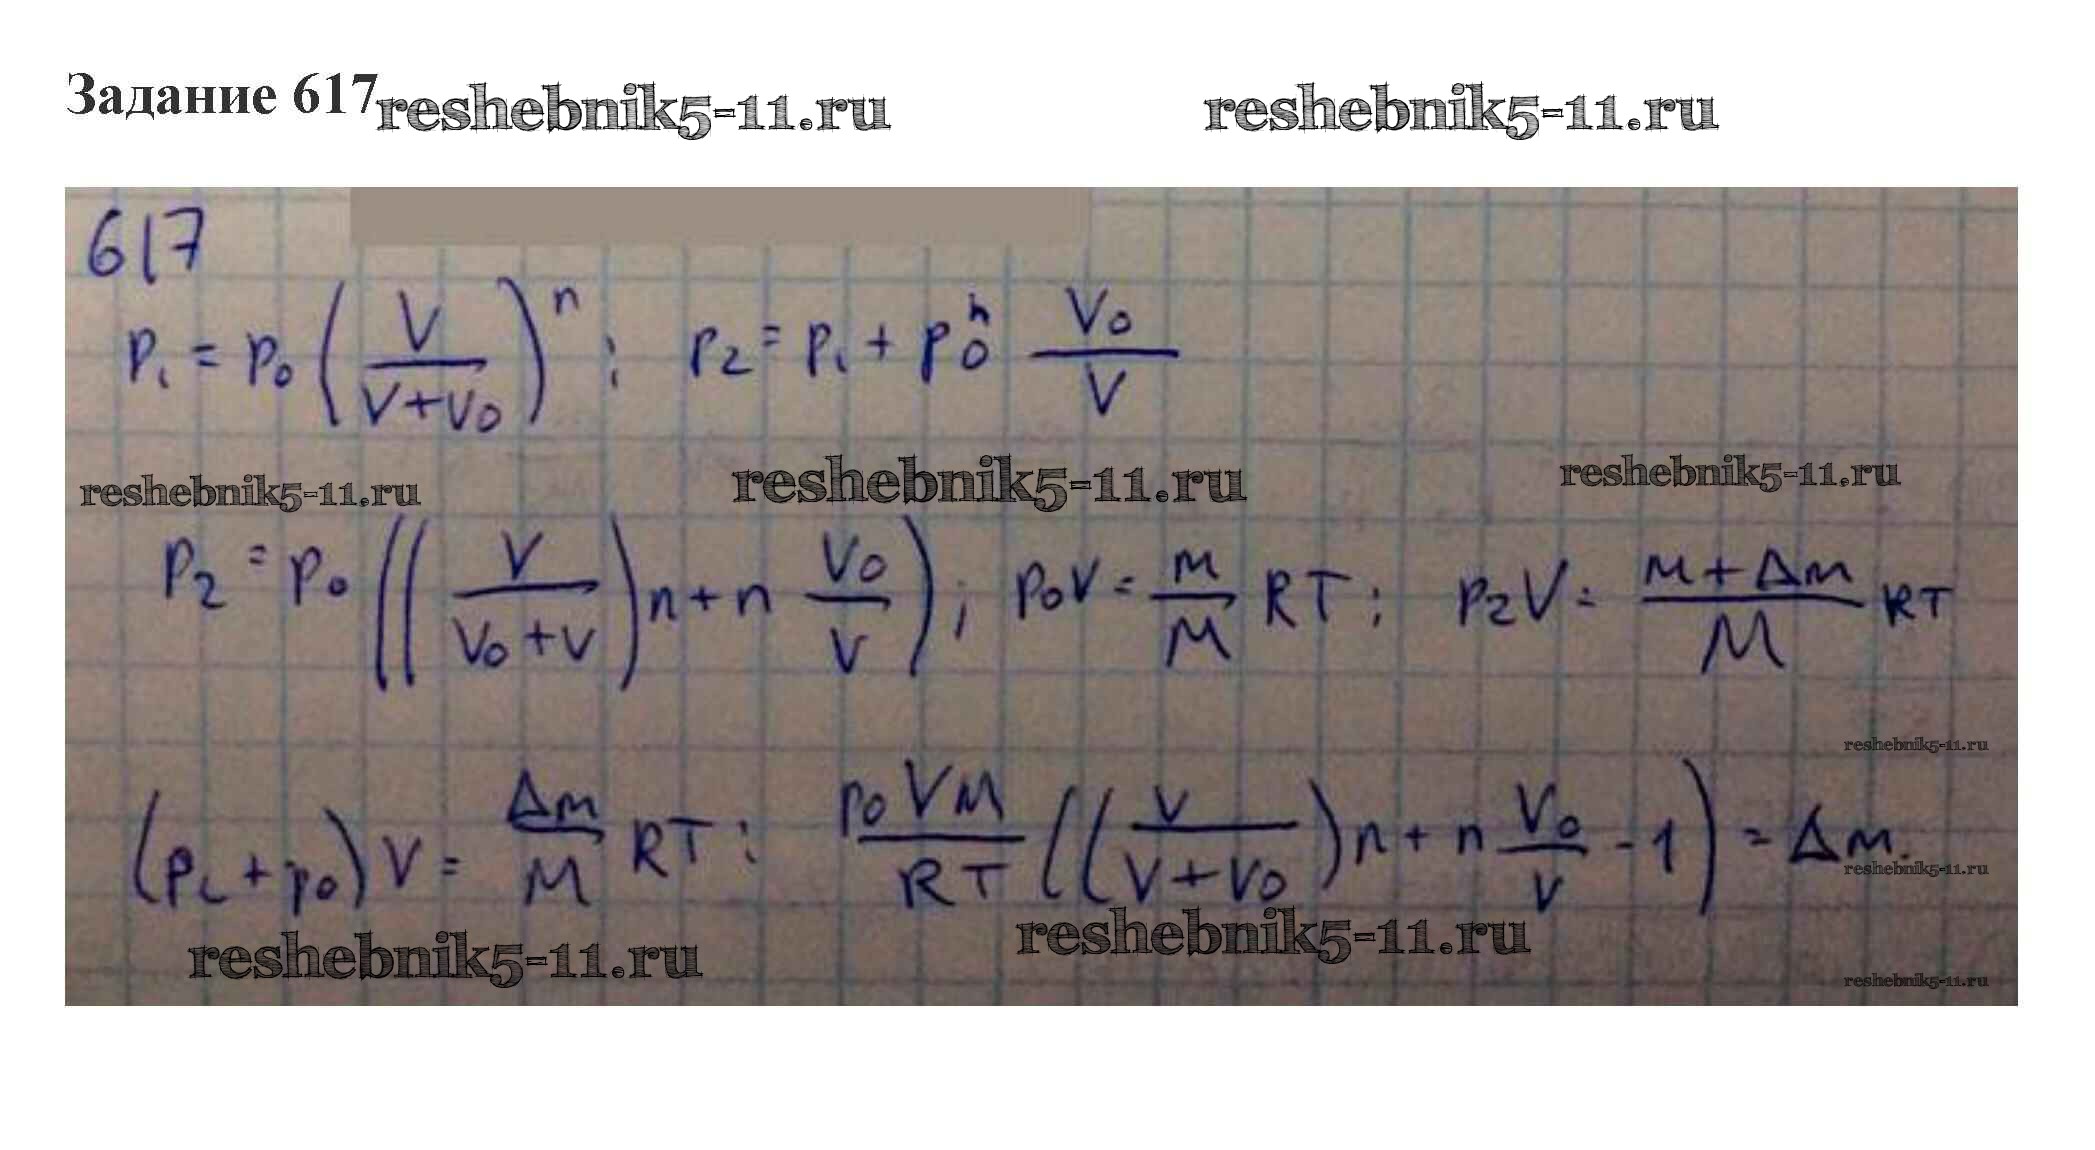 Задание 617
reshebnik5-11.ru reshebnik5-11.ru
617
p₁ = p₀ (V / (V+V₀))ⁿ ; p₂ = p₁ + p₀ⁿ V₀ / V
reshebnik5-11.ru reshebnik5-11.ru reshebnik5-11.ru
p₂ = p₀ ((V / (V₀+V)) n + n V₀ / V) ; p₀V = m / M RT ; p₂V = (m + Δm) / M RT
reshebnik5-11.ru
(p₂ + p₀) V = Δm / M RT ; p₀VM / RT ((V / (V+V₀)) n + n V₀ / V - 1) = Δm.
reshebnik5-11.ru
reshebnik5-11.ru reshebnik5-11.ru
reshebnik5-11.ru